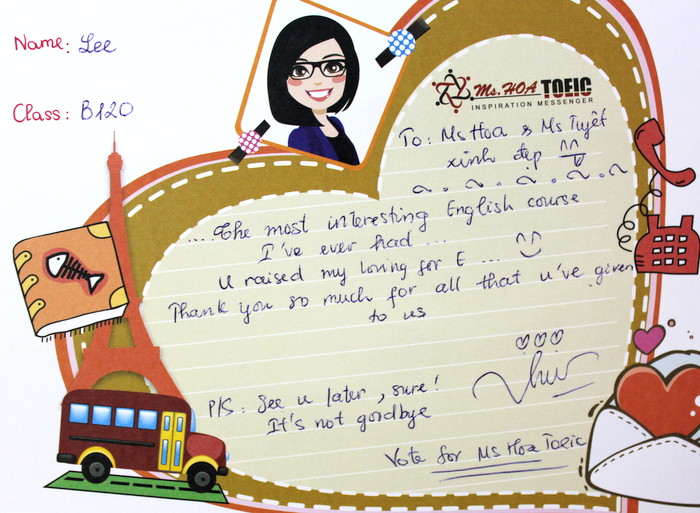 Name: Lee
Class: B120
Ms.HOA TOEIC
INSPIRATION MESSENGER
To: Ms Hoa & Ms Tuyết
xinh đẹp ^^
....The most interesting English course
I've ever had ...
U raised my loving for E ...
Thank you so much for all that u've given
to us
P/S: See u later, sure!
It's not goodbye
Vote for Ms Hoa Toeic